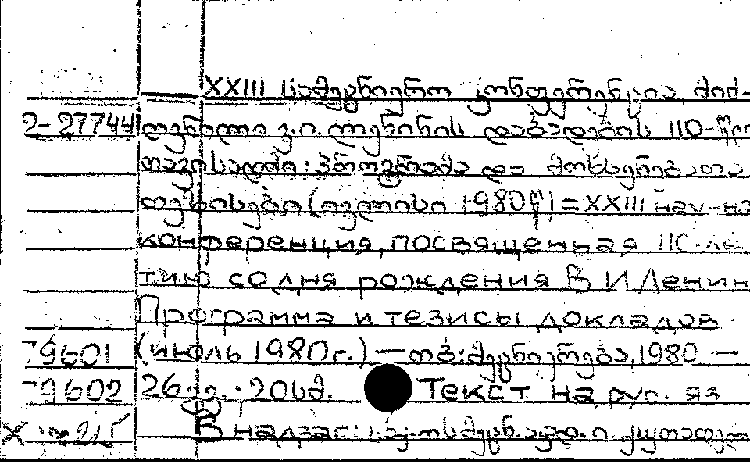 XXIII სამეცნიერო კონფერენცია მიძ-
2-27744 ღვნილი ვ.ი. ლენინის დაბადების 110-წლი
თავისადმი: პროგრამა და მოხსენებათა
თეზისები (ივლისი 1980წ) = XXIII науч-
конференция, посвященная 110-ле
тию со дня рождения В И Ленин
Программа и тезисы докладов
79601 (июль 1980г.) — თბ.: მეცნიერება, 1980 —
79602 26 გვ. 20სმ. Текст на рус. яз
X В надзаг: